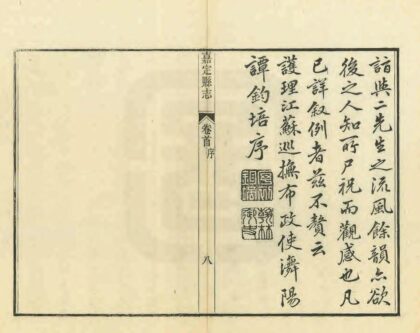 詣與二先生之流風餘韻亦欲
後之人知所尸祝而觀感也凡
已詳叙例者茲不贅云
護理江蘇巡撫布政使濟陽
譚鈞培序
嘉定縣志
卷首
序
八